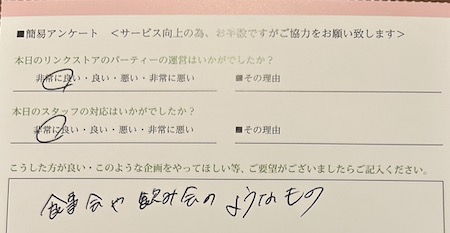 ■簡易アンケート ＜サービス向上の為、お手数ですがご協力をお願い致します＞
本日のリンクストアのパーティーの運営はいかがでしたか？
非常に良い・良い・悪い・非常に悪い ■その理由
本日のスタッフの対応はいかがでしたか？
非常に良い・良い・悪い・非常に悪い ■その理由
こうした方が良い・このような企画をやってほしい等、ご要望がございましたらご記入ください。
食事会や飲み会のようなもの